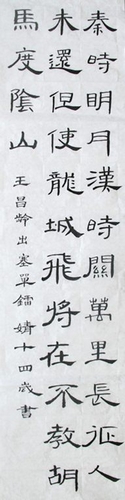 秦時明月漢時關萬里長征人
未還但使龍城飛將在不教胡
馬度陰山
王昌齡出塞單鐳婧十四歲書